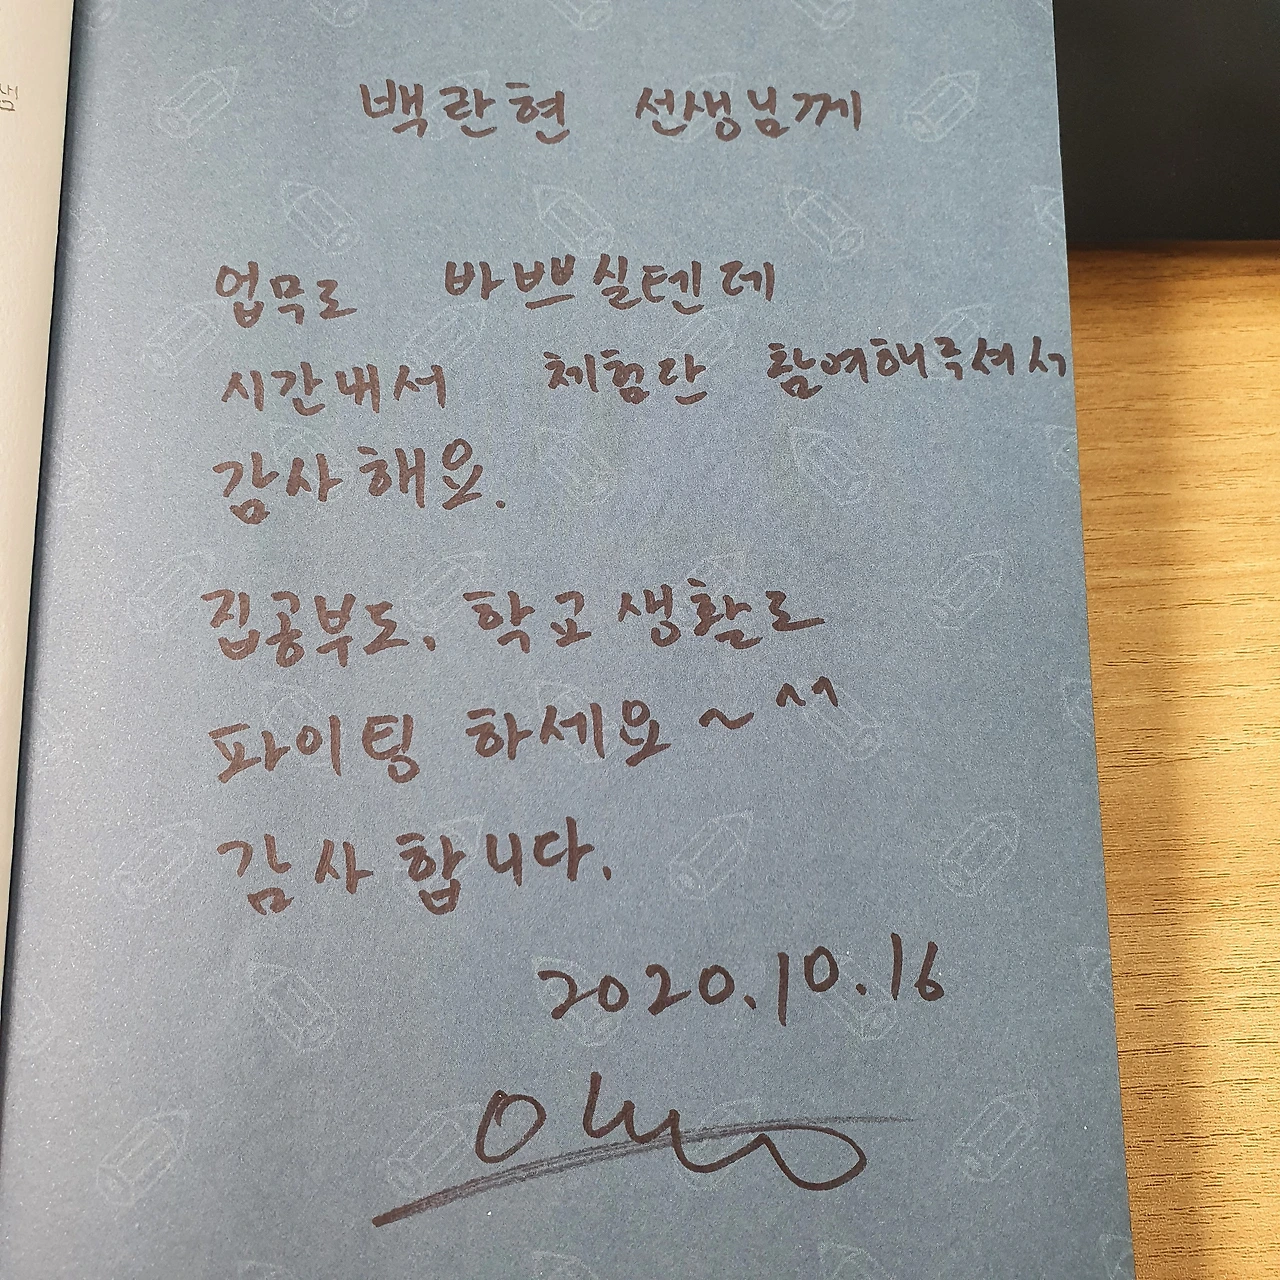 쌤
백란현 선생님께
업무로 바쁘실텐데
시간내서 체험단 참여해주셔서
감사해요.
집공부도, 학교 생활로
파이팅 하세요~^^
감사합니다.
2020.10.16